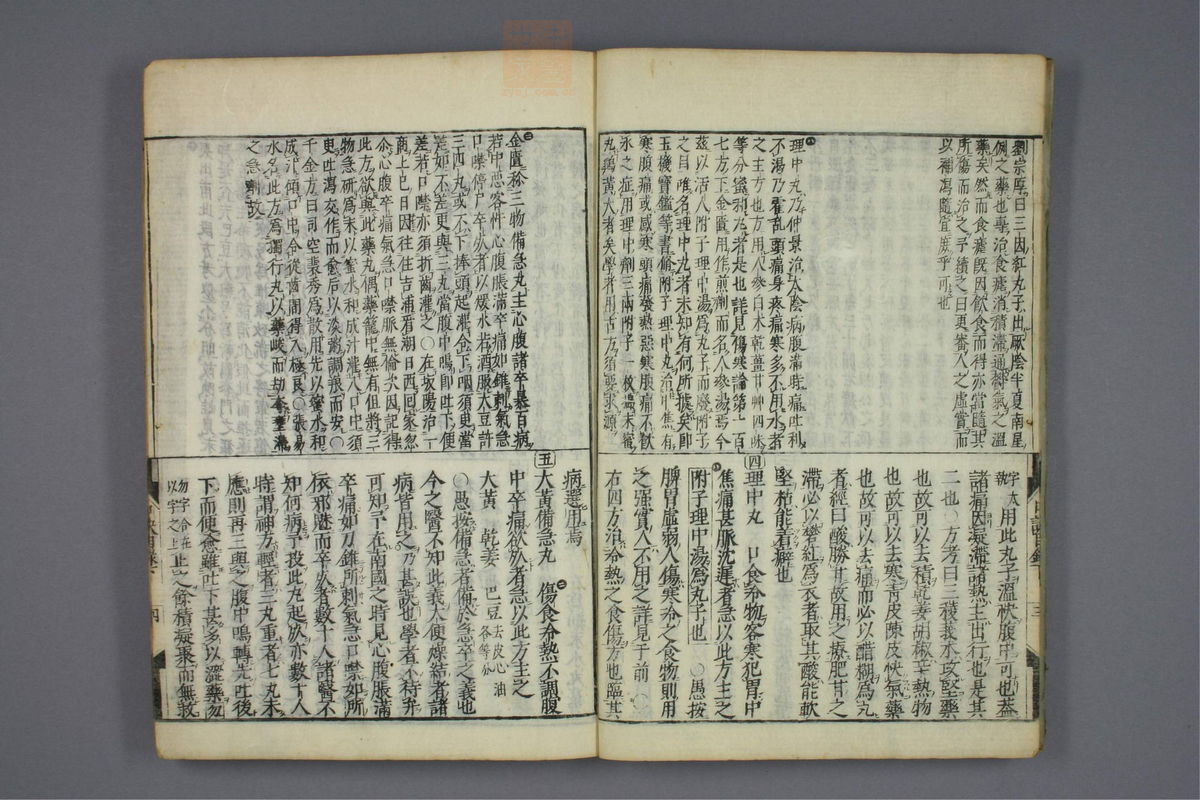 劉宗厚曰三因紅丸子出厥陰半夏南星
例之藥也專治食瘧消積滯通神氣之溫
藥矣然而食瘧既因飲食而得亦當隨其
所傷而治之予續之曰更審人之虛實而
以補瀉隨宜庶乎可也
理中丸乃仲景治太陰病腹滿時痛吐利
不渴乃霍亂頭痛身疼痛寒多不用水者
之主方也方用人參白朮乾薑甘艸四味
等分蜜和丸者是也詳見傷寒論第一百
七方下金匱用作煎劑而名人參湯焉今
茲以活人附子理中湯爲丸子而廢附子
之目唯名理中丸者未知有何所據矣即
玉機寶鑑等書倂附子理中丸治中焦有
寒腹痛或感寒頭痛發熱惡寒腹痛不飲
水之症用理中劑三兩附子一枚爲末蜜
丸鷄黃大者矣學者用古方須要求源
字大用此丸子溫快腹中可也蓋
諸痛因凝滯諸熱主出行也是其
二也○方考曰三稜莪朮攻堅藥
也故可以去積乾姜胡椒辛熱物
也故可以去寒青皮陳皮快氣藥
也故可以去痛而必以醋糊爲丸
者經曰酸勝甘故用之療肥甘之
滯必以礬紅爲衣者取其酸能軟
堅枯能着癖也
四 理中丸 口食冷物客寒犯胃中
焦痛甚脈沈遲者急以此方主之
附子理中湯爲丸子也 ○愚按
脾胃虛弱人傷寒冷之食物則用
之强實人不用之詳見于前 ○
右四方治冷熱之食傷方也臨其
金匱〻三物備急丸主心腹諸卒暴百病
若中惡客忤心腹脹滿卒痛如錐刺氣急
口噤停尸卒死者以煖水若酒服大豆許
三四丸或不下捧頭起灌令下咽須臾當
差如不差更與三丸當腹中鳴即吐下便
差若口噤亦須折齒灌之○在坂陽治一
商上巳日因往住吉浦看潮日西囘家忽
心腹卒痛氣急口噤脈無倫次因記得
此方欲與此藥丸偶藥籠中無有徂將三
物急硏爲末以蜜水和成汁灌入口中須
臾吐瀉交作而愈后以淡粥調養而安○
千金方曰司空裴秀爲散用先以蜜水和
成汁傾口中令從齒間得入極良○張易
水名此方爲獨行丸以藥峻而劫
之急劑故
病選用焉
五 大黃備急丸 傷食冷熱不調腹
中卒痛欲死者急以此方主之
大黃 乾姜 巴豆去皮心油各等分
○愚按備急者備於急卒之義也
今之醫不知此義大便燥結者諸
病皆用之乃甚誤也學者不待弁
可知予在南國之時見心腹脹滿
卒痛如刀錐所刺氣急口噤如所
衣邪魅而卒死者數十人諸醫不
知何病予投此丸起死亦數十人
時謂神方輕者三丸重者七丸未
應則再三與之腹中鳴轉先吐後
下而便愈雖吐下甚多以澁藥勿
勿字合在止之餘積凝聚而無救
以字之上